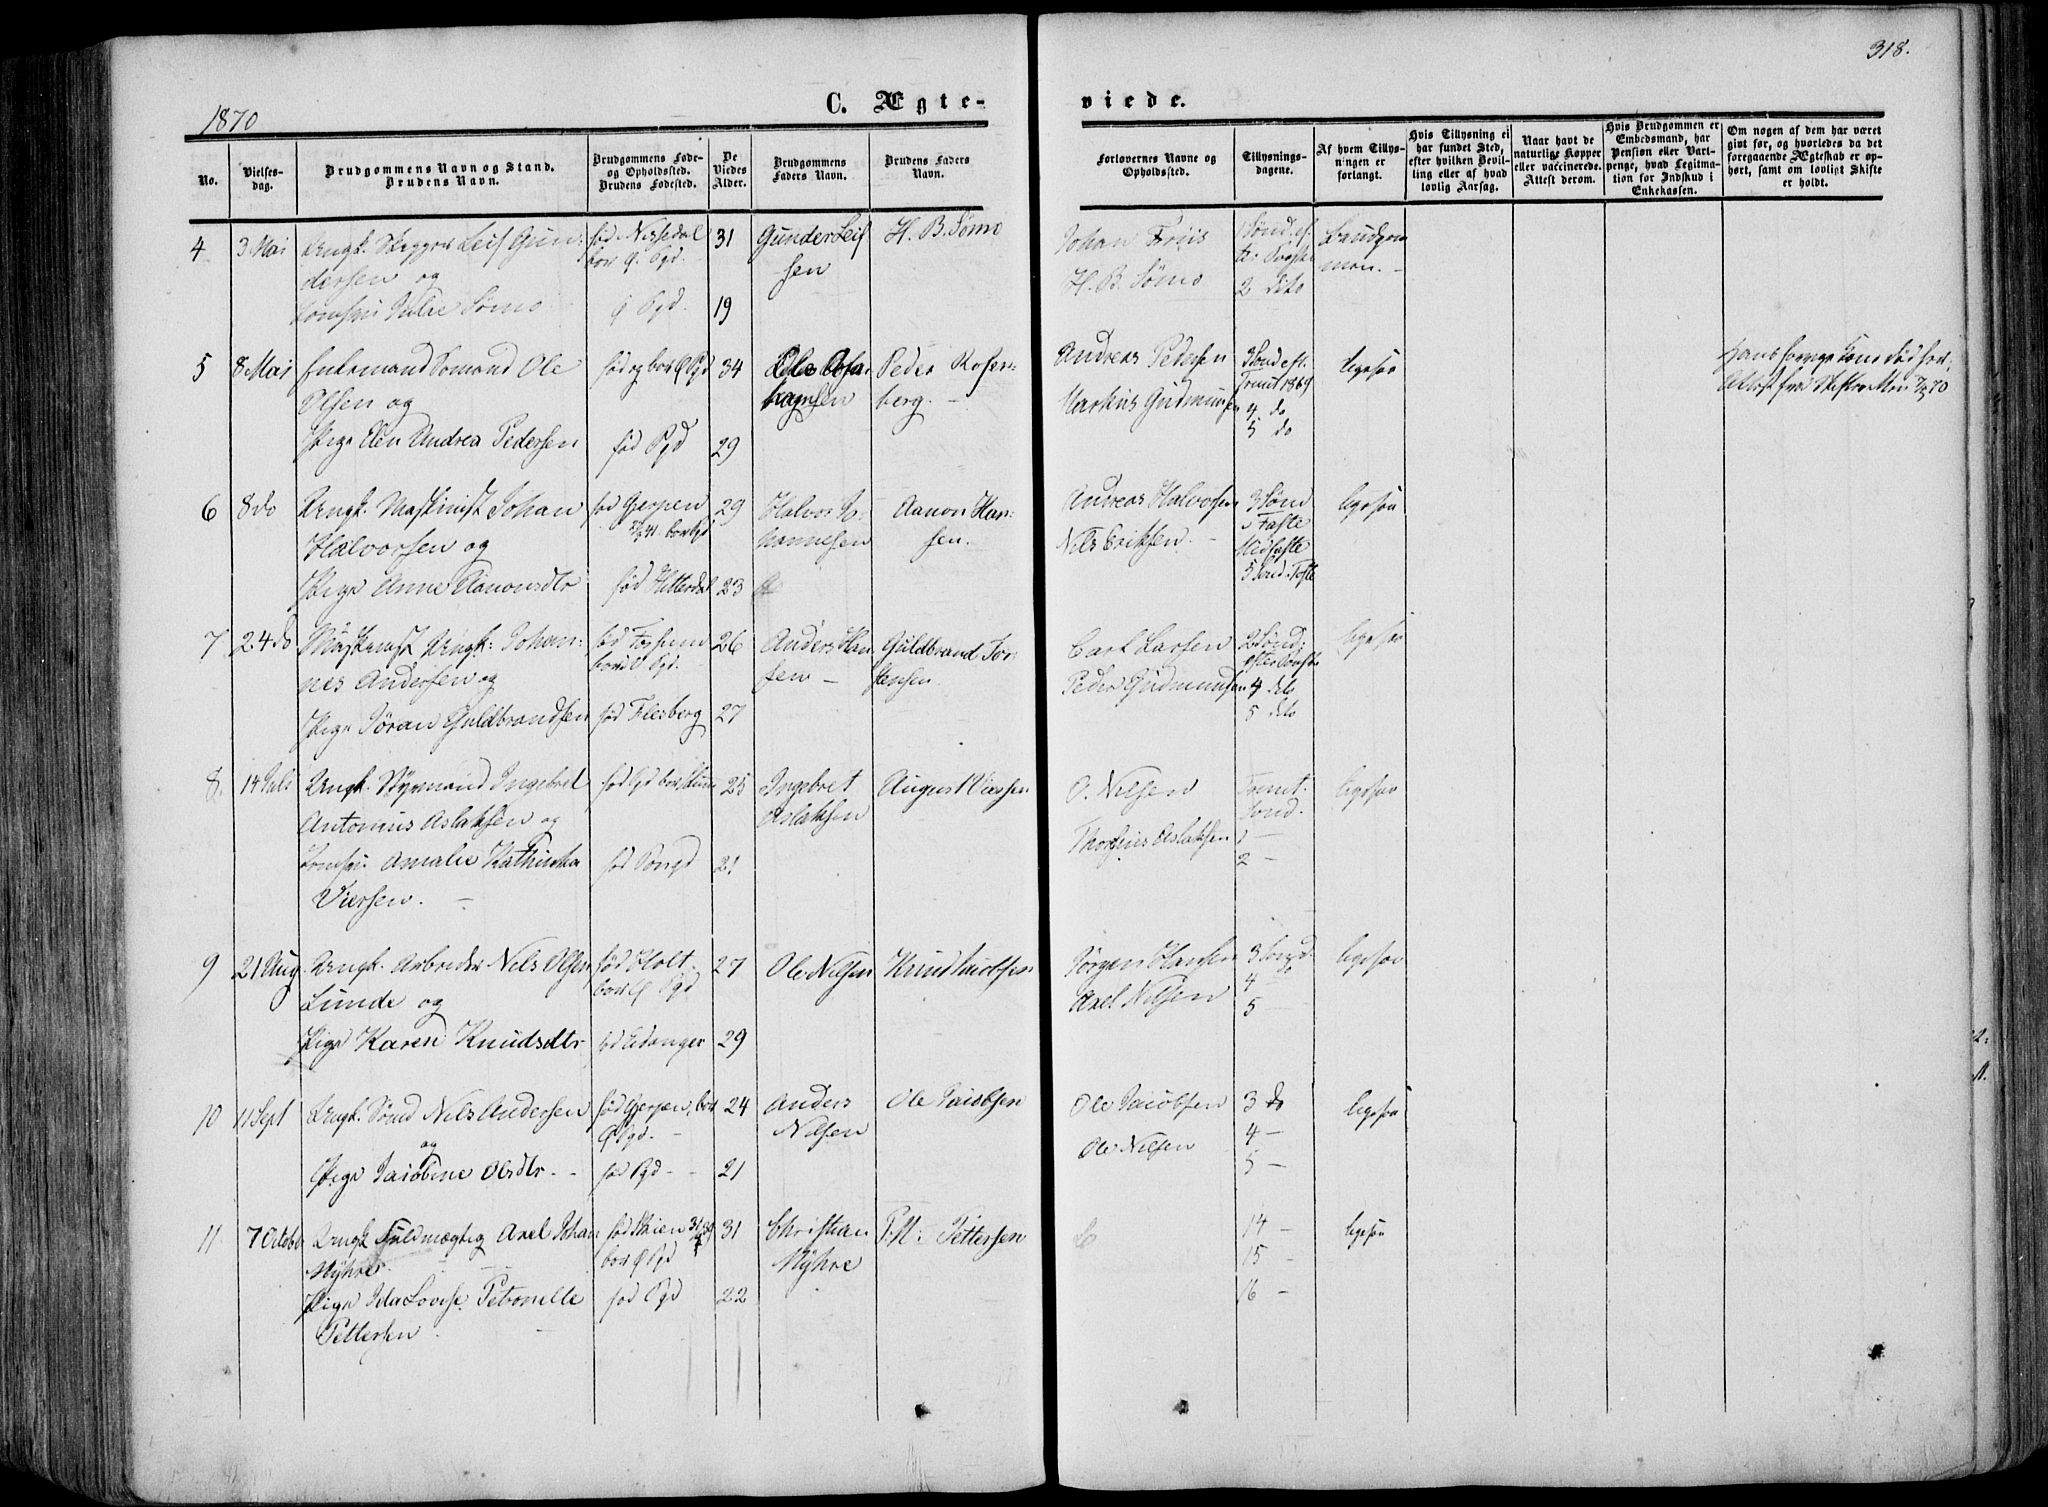 318.
1870
C. Ægte-
viede.
No.
Vielses-
dag.
Brudgommens Navn og Stand.
Brudens Navn.
Brudgommens Føde-
og Opholdssted.
Brudens Fødested.
De
Viedes
Alder.
Brudgommens
Faders Navn.
Brudens Faders
Navn.
Forlovernes Navne og
Opholdssted.
Tillysnings-
dagene.
Af hvem Tillys-
ningen er
forlangt.
Hvis Tillysning ei
har fundet Sted,
efter hvilken Bevil-
ling eller af hvad
lovlig Aarsag.
Naar havt de
naturlige Kopper
eller vaccinerede.
Attest derom.
Hvis Brudgommen er
Embedsmand, har
Pension eller Vart-
penge, hvad Legitma-
tion for Indskud i
Enkekassen.
Om nogen af dem har været
givt før, og hvorledes da det
foregaaende Ægteskab er op-
hørt, samt om lovligt Skifte
er holdt.
4 3 Mai Ungk. Leif Gun-
dersen og
Julie Sømo
fød Nissedal
bor Pgd.
31
Pgd. 19
Gunder Leif
sen
H. B. Sømo
Johan Friis
H. B. Sømo
2 dito
Brudgom
men.
5 8 Mai Enkemand Sømand Ole
Olsen og
Pige Elen Andrea Pedersen
fød og bor Pgd 34
fød Pgd 29
Peder Rosen-
berg.
Andreas Pedersen
Markus Gudmunsen
3 Sond eft.
Trinit 1869
4 do
5 do
ligesaa
6 8 do Ungk. Maskinist Johan
Halvorsen og
Pige Anne Aanonsdtr
fød Gjerpen 29
bor Pgd
fød Hitterdal 23
Halvor Jo-
hannesen
Aanon Han-
sen.
Andreas Halvorsen
Nils Eriksen.
3 Sønd
i Faste
Midfaste
5 Sønd i Faste
ligesaa
7 24 do Maskinist Ungk: Johan-
nes Andersen og
Pige Jøran Guldbrandsen
fød Fossum
bor Pgd. 26
fød Flesberg 27
Anders Han
sen
Guldbrand Tor-
stensen
Carl Larsen
Peder Gudmundsen
2 Sønd.
4 dito
5 dito
ligesaa
8. 14 Juli Ungk. Styrmand Ingebret
Antonius Aslaksen og
Jomfru Amalie Kathinka
Viersen.
25
21
Ingebret
Aslaksen
August Viersen
O. Nilsen
Thorsius Aslaksen
Trinit.
Sønd.
1 —
2 —
ligesaa
9 21 Aug Ungk. Arbeider Nils Olsen
Lunde og
Pige Karen Knudsdtr
fød Holt
bor Pgd 27
fød Eidanger 29
Ole Nilsen
Knud Jacobsen
Jørgen Hansen
Axel Nilsen
3 Sønd
4 —
5 —
ligesaa
10 11 Sept Ungk. Sømd Nils Andersen
og
Pige Jacobine Olsdtr
fød Gjerpen, bor
Pgd. 24
fød Pgd 21
Anders
Nilsen
Ole Jacobsen
Ole Jacobsen
Ole Nilsen
3 do
4 —
5 —
ligesaa
11 7 Octobr Ungk Fuldmægtig Axel Johan
Myhre
Pige Ida Lovise Petronelle
Pettersen
fød Skien
bor Pgd 31
fød Pgd 22
Christian
Myhre
P. M. Pettersen
14 —
15 —
16 —
ligesaa